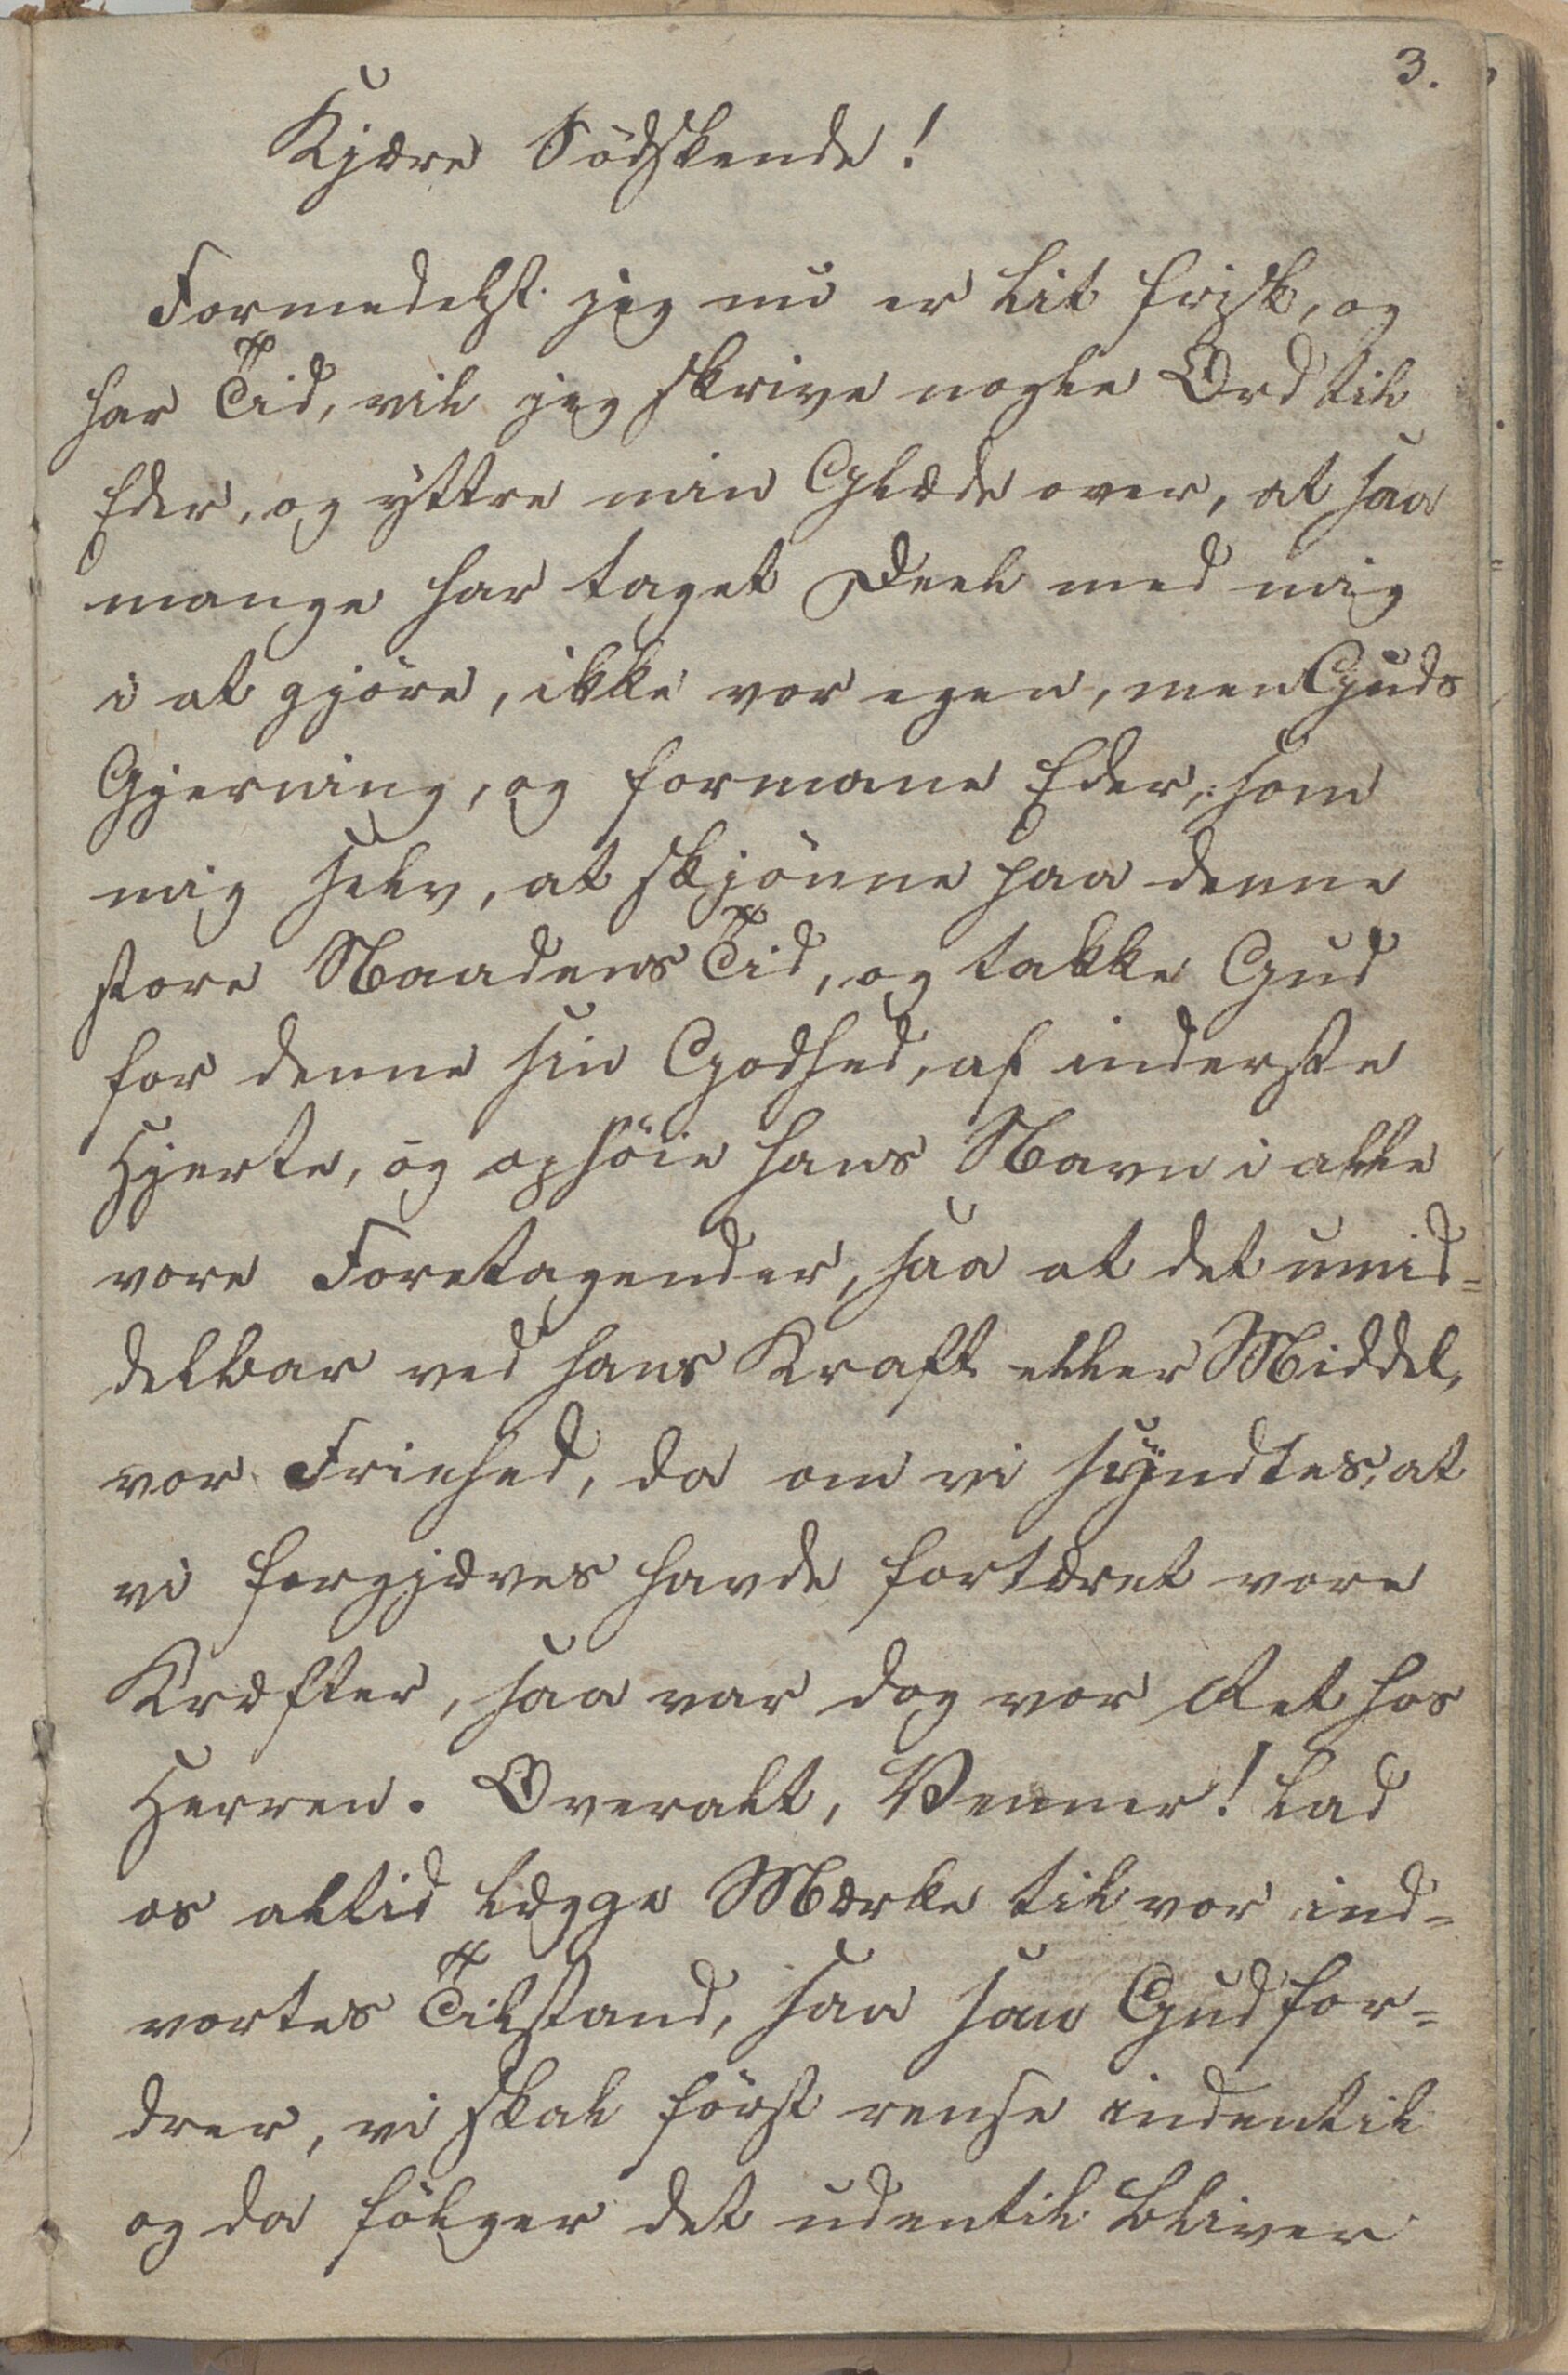 3.
Kjære Södskende!
Formedelst jeg nu er lit frisk, og
har Tid, vil jeg skrive nogle Ord til
Eder, og yttre min Glæde over, at saa
mange har taget Deel med mig
i at gjöre, ikke vor egen, men Guds
Gjerning, og formane Eder, som
mig selv, at skjönne paa denne
store Naadens Tid, og takke Gud
for denne sin Godhed, af inderste
Hjerte, og ophöie hans Navn i alle
vore Foretagender, saa at det umid=
delbar ved hans Kraft eller Middel,
vor Friehed, da om vi syndtes, at
vi forgjæves havde fortæret vore
Kræfter, saa var dog vor Ret hos
Herren. Overalt, Venner! lad
os altid lægge Mærke til vor ind=
vortes Tilstand, saa som Gud for=
drer, vi skal först rense indentil
og da fölger det udentil bliver